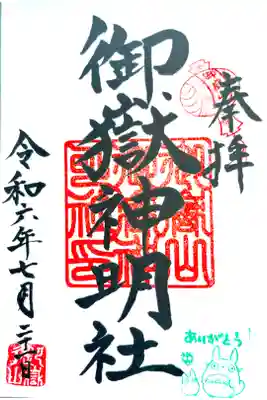 奉拝
御嶽神明社
令和六年七月二十一日
ありがとう!